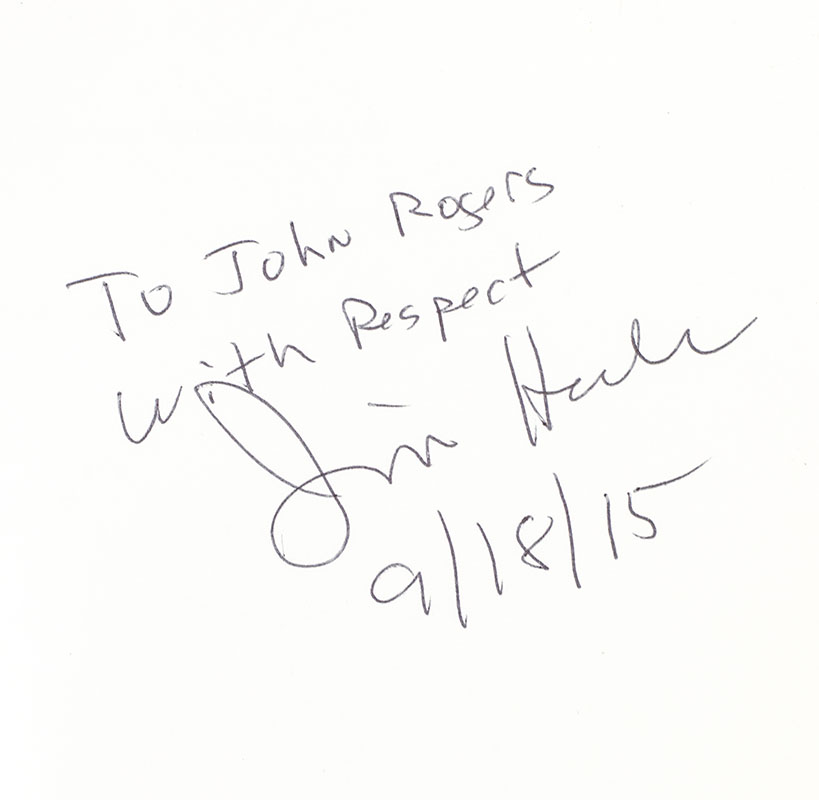 To John Rogers
with Respect
Jim
9/18/15